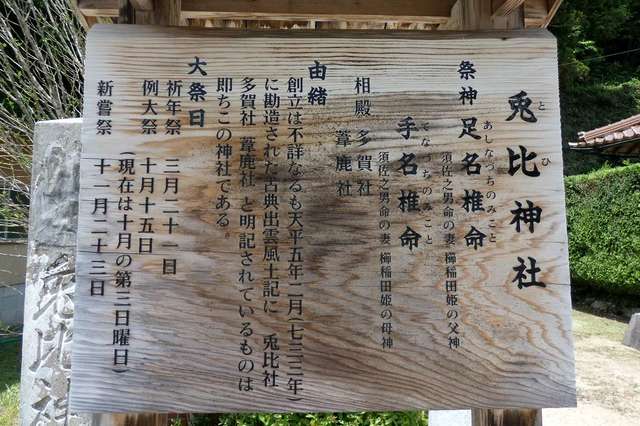 兎比神社
とひ
祭神 足名椎命
あしなづちのみこと
須佐之男命の妻 櫛稲田姫の父神
手名椎命
てなづちのみこと
須佐之男命の妻 櫛稲田姫の母神
相殿 多賀社
葦鹿社
由緒
創立は不詳なるも天平五年二月(七三三年)
に勘造された古典出雲風土記に 兎比社
多賀社 葦鹿社 と明記されているものは
即ちこの神社である。
大祭日
祈年祭 三月二十一日
例大祭 十月十五日
(現在は十月の第三日曜日)
新嘗祭 十一月二十三日
兎比神